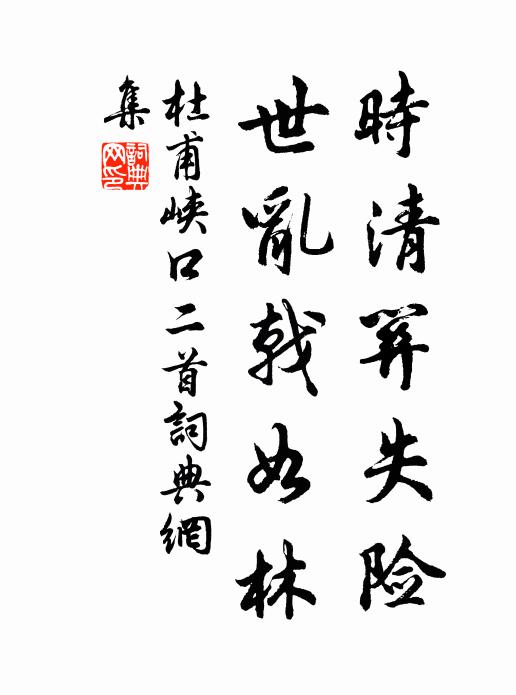 時清関失险
世亂戟如林
杜甫峽口二首詞典網
集
詞典
网印